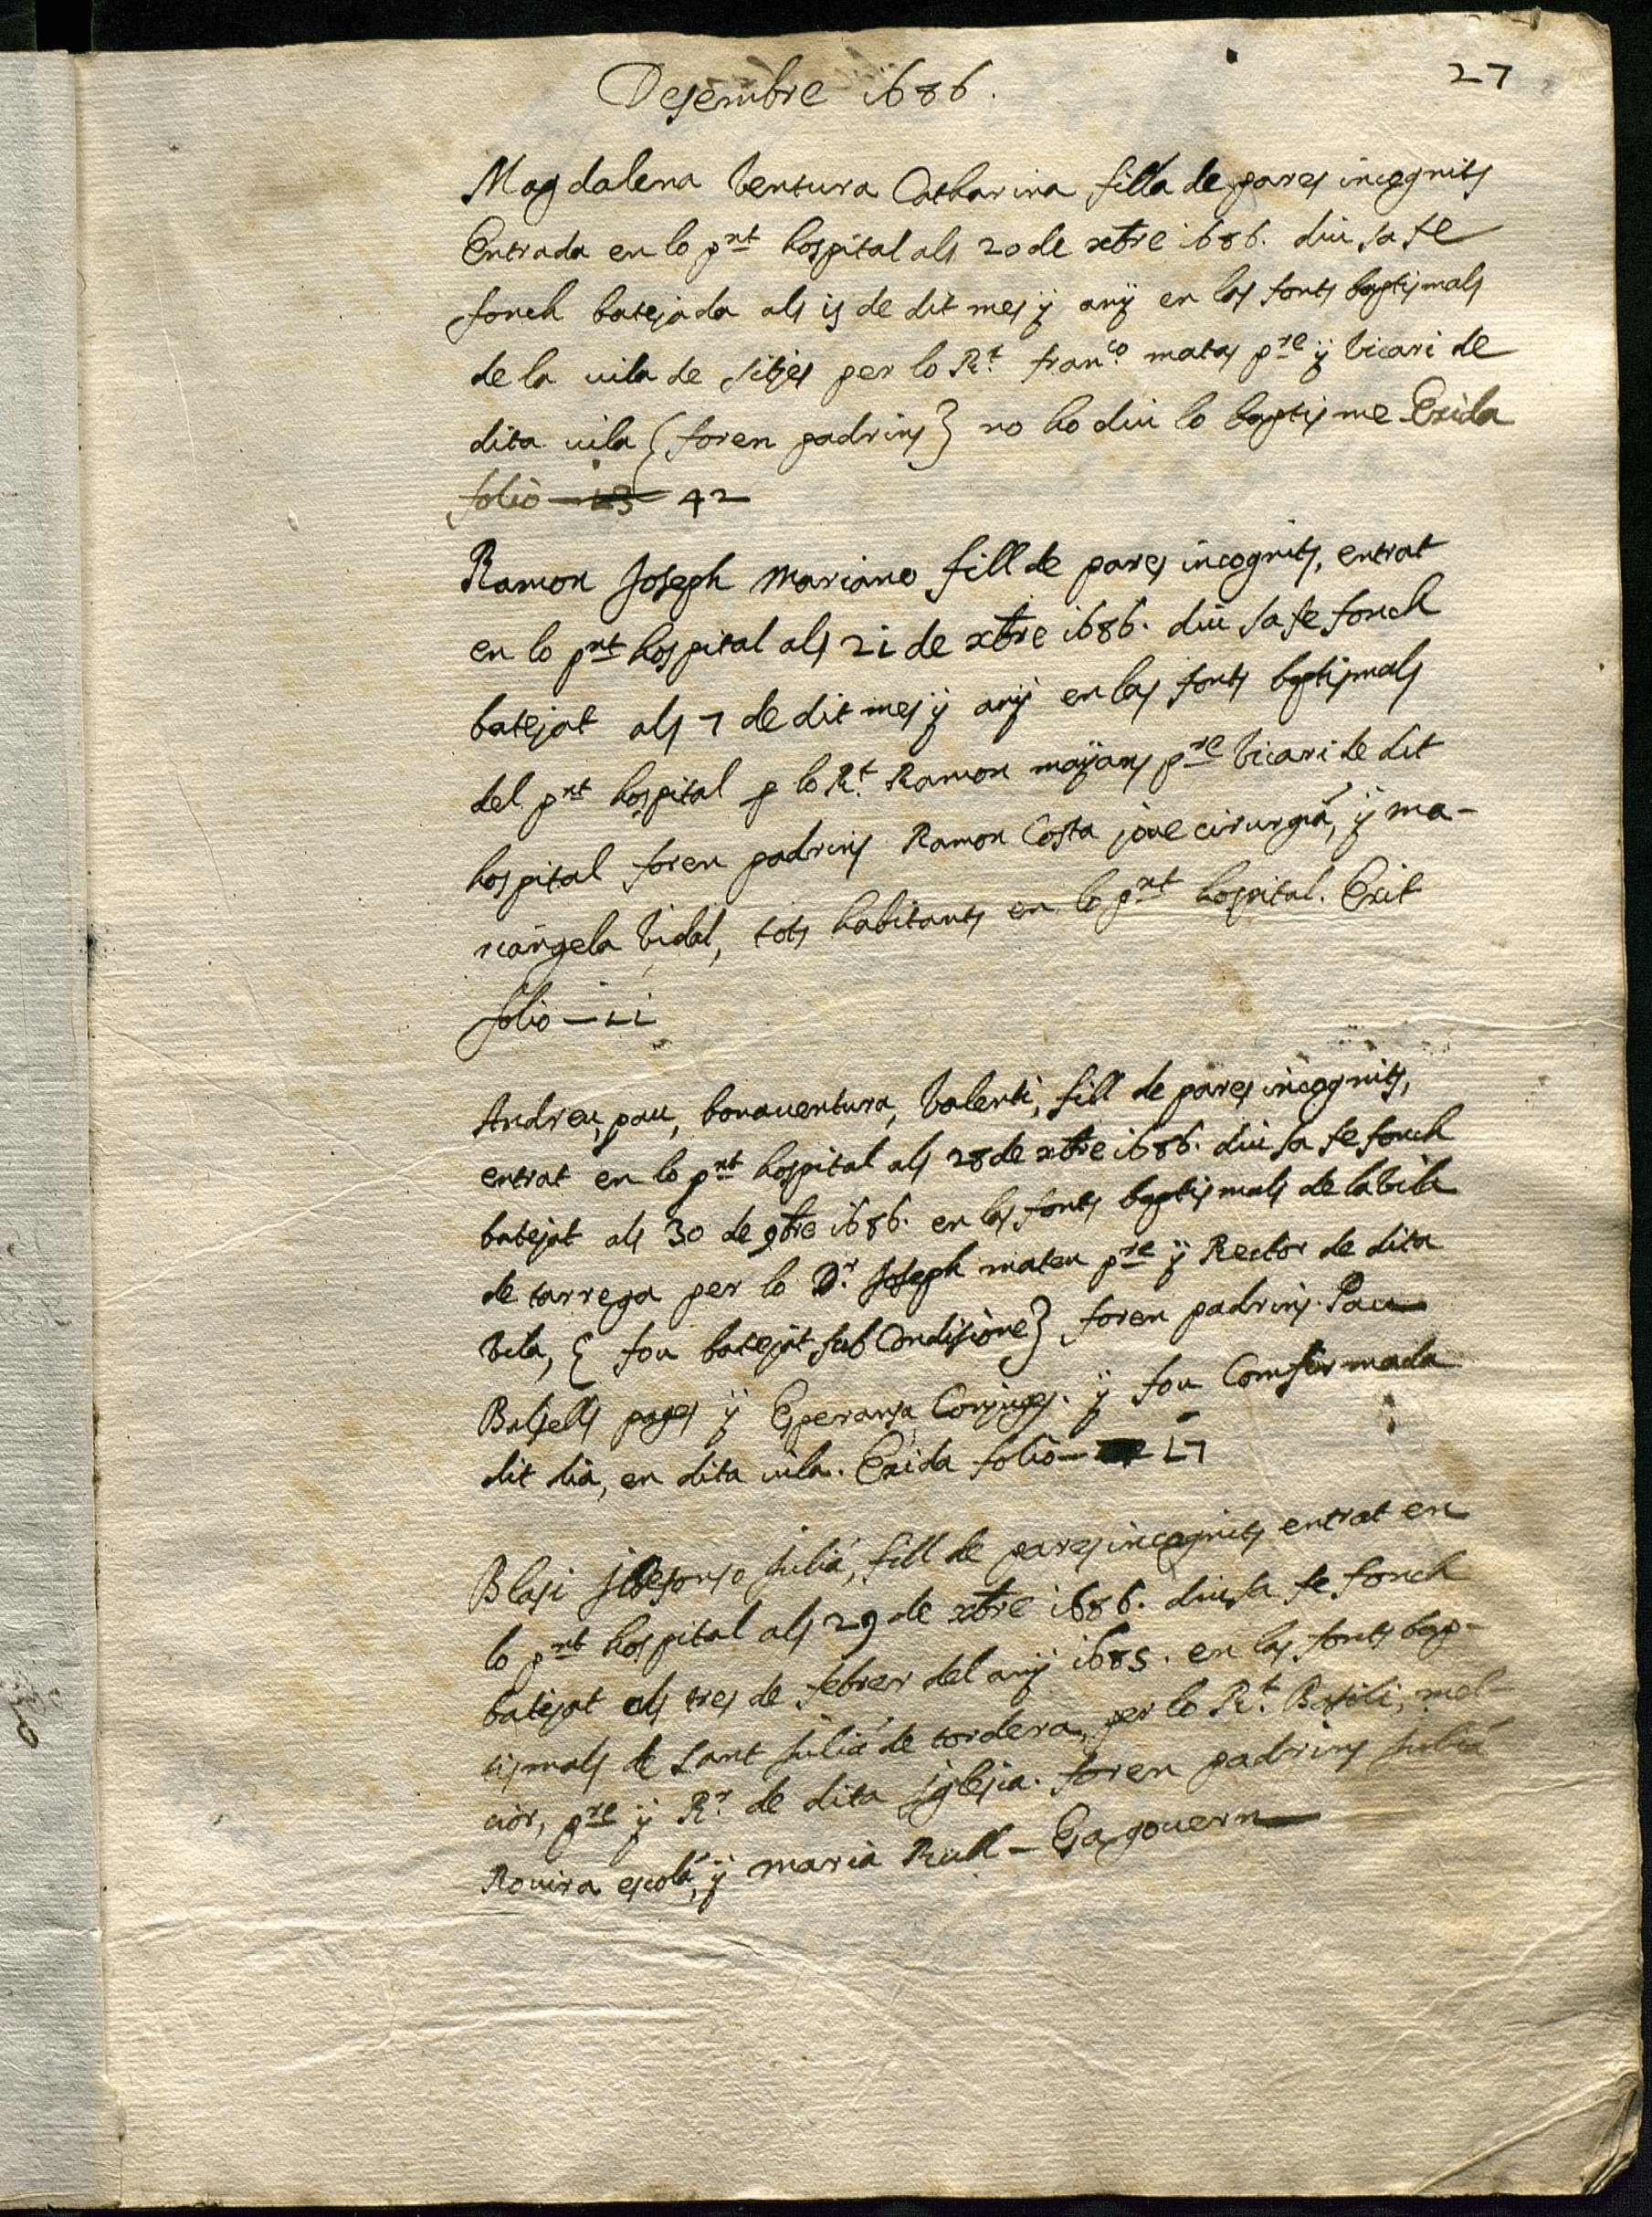 Desembre 1686.
27
Magdalena Ventura Catharina filla de pares incognits
Entrada en lo pnt hospital als 20 de xbre 1686. diu sa fe
fonch batejada als 15 de dit mes ÿ anÿ en las fonts baptismals
de la uila de sitjes per lo Rt. franco. matas pre ÿ Vicari de
dita uila {foren padrins} no ho diu lo baptisme Exida
folio — 42
Ramon Joseph Mariano fill de pares incognits, entrat
en lo pnt hospital als 21 de xbre 1686. diu sa fe fonch
batejat als 7 de dit mes ÿ anÿ en las fonts baptismals
del pnt hospital p lo Rt. Ramon maÿans pre Vicari de dit
hospital foren padrins Ramon Costa joue cirurgiá, ÿ ma-
riangela Vidal, tots habitants en lo pnt hospital. Exit
folio — 11
Andreu, pau, bonauentura, Valenti, fill de pares incognits,
entrat en lo pnt hospital als 28 de xbre 1686. diu sa fe fonch
batejat als 30 de 9bre 1686. en las fonts baptismals de la Vila
de tarrega per lo Dr. Joseph mateu pre ÿ Rector de dita
Vila, { fou batejat sub Condisione} foren padrins Pau
Balsells pages ÿ Esperansa Conjuges. ÿ fou Comfirmada
dit dia, en dita uila. Exida folio — 17
Blasi Ildefonso Juliá, fill de pares incognits entrat en
lo pnt hospital als 29 de xbre 1686. diu sa fe fonch
batejat als tres de febrer del anÿ 1685. en las fonts bap-
tismals de Sant Juliá de tordera, per lo Rt. Basili, mel-
cior, pre ÿ Rr. de dita Iglesia. foren padrins Juliá
Rouira escolá, ÿ maria Rull — Esa gouern